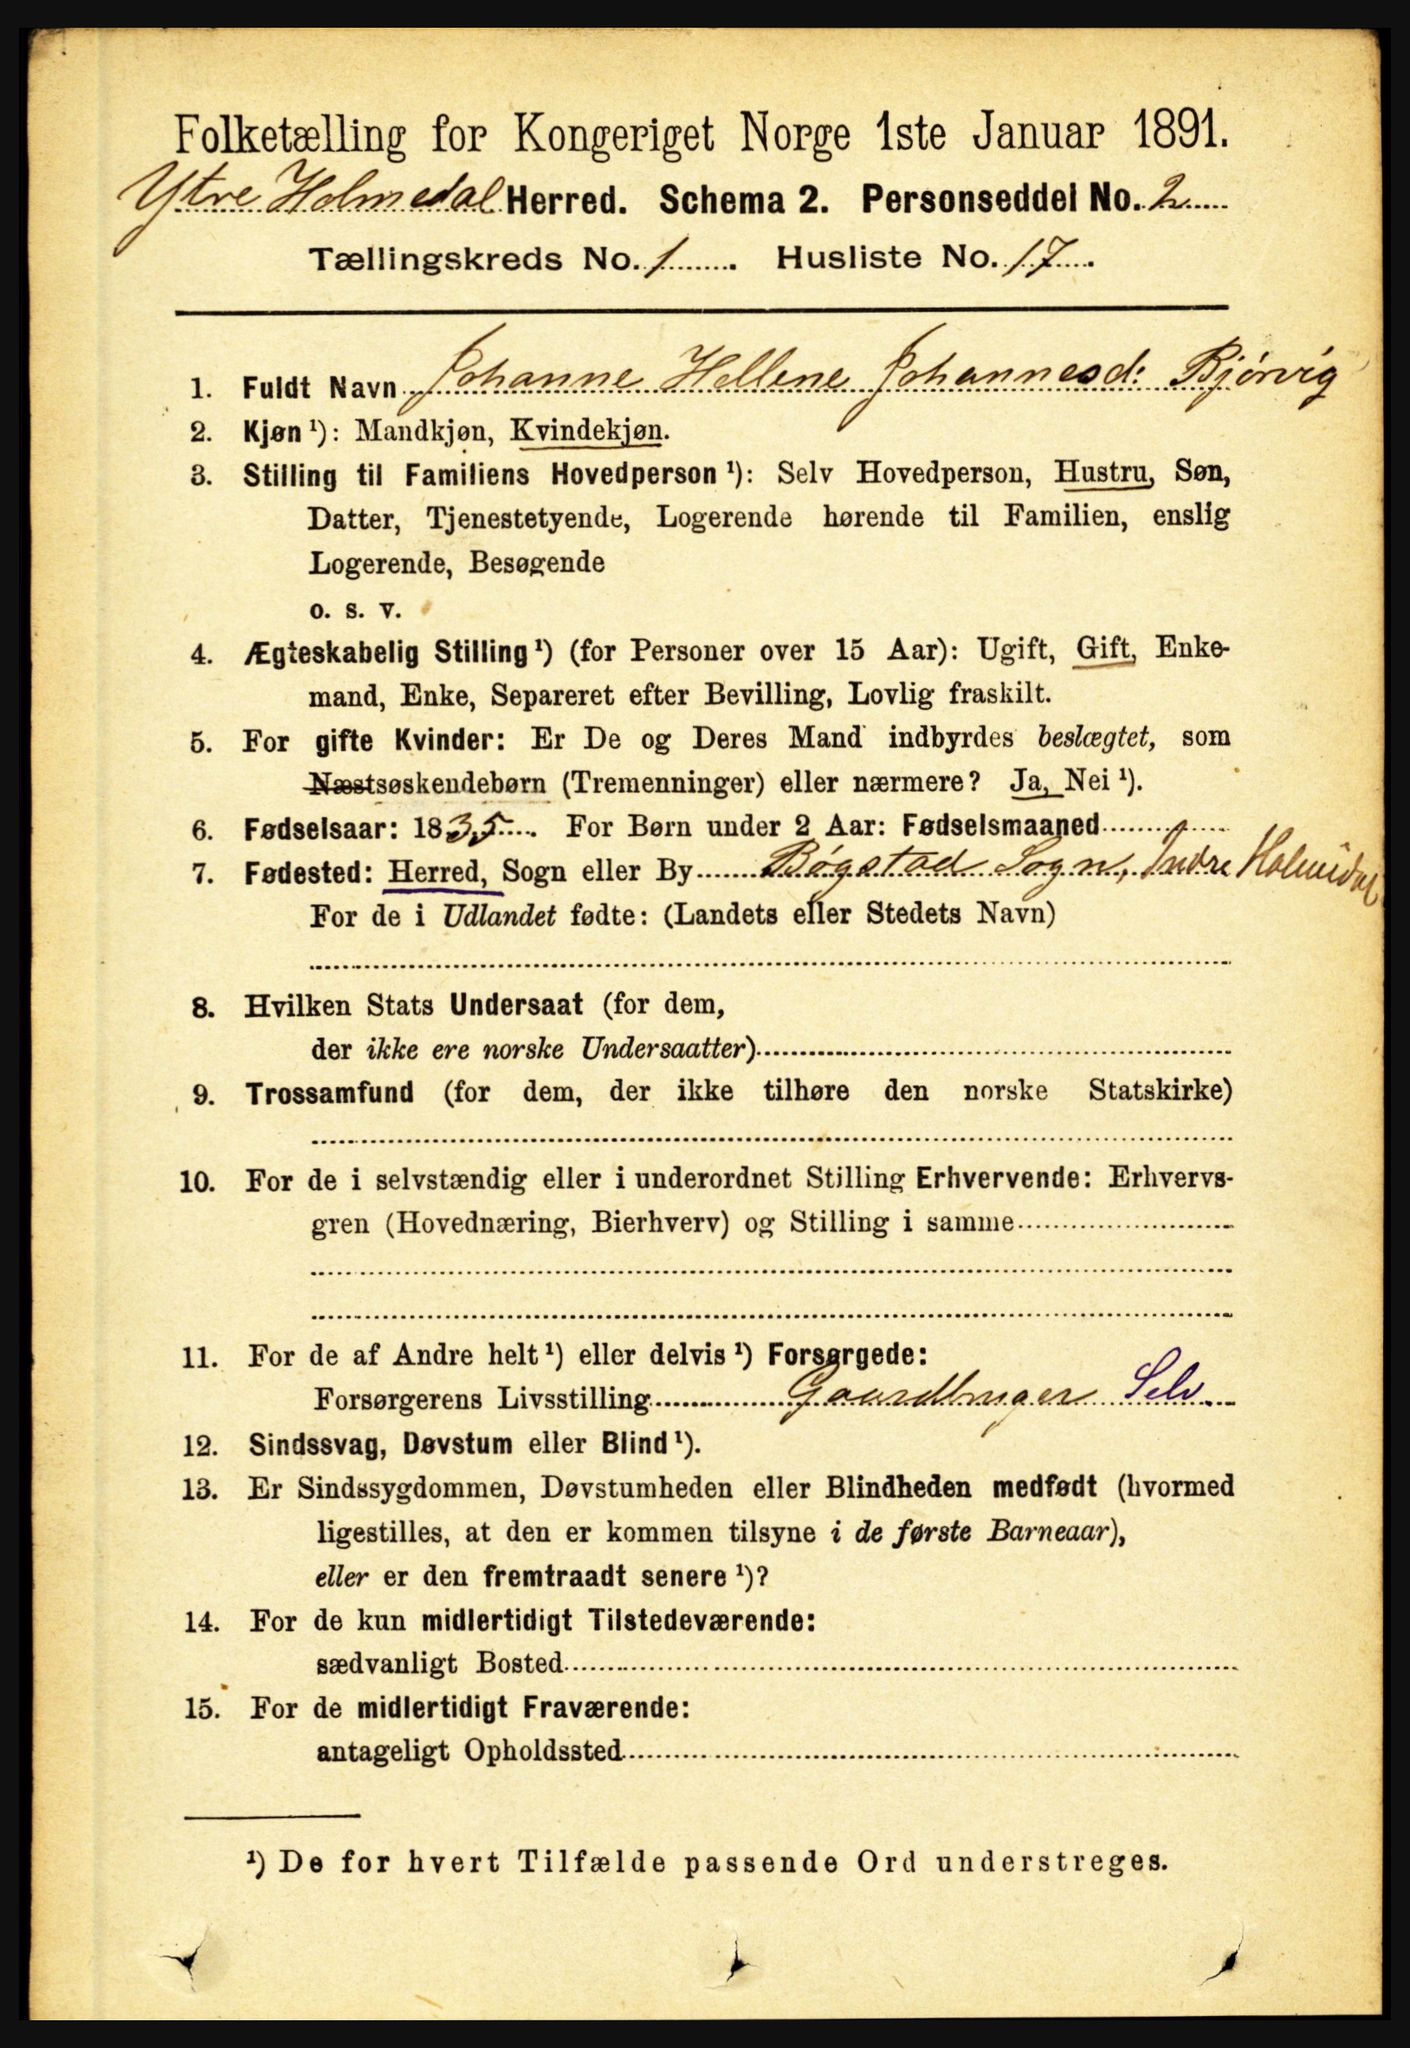 Folketælling for Kongeriget Norge 1ste Januar 1891.
Ytre Holmedal Herred. Schema 2. Personseddel No. 2
Tællingskreds No. 1. Husliste No. 17.
1. Fuldt Navn Johanne Hellene Johannesd: Bjørvig
2. Kjøn ¹): Mandkjøn, Kvindekjøn.
3. Stilling til Familiens Hovedperson ¹): Selv Hovedperson, Hustru, Søn,
Datter, Tjenestetyende, Logerende hørende til Familien, enslig
Logerende, Besøgende
o. s. v.
4. Ægteskabelig Stilling ¹) (for Personer over 15 Aar): Ugift, Gift, Enke-
mand, Enke, Separeret efter Bevilling, Lovlig fraskilt.
5. For gifte Kvinder: Er De og Deres Mand indbyrdes beslægtet, som
Næstsøskendebørn (Tremenninger) eller nærmere? Ja, Nei ¹).
6. Fødselsaar: 1835. For Børn under 2 Aar: Fødselsmaaned
7. Fødested: Herred, Sogn eller By Bøgstad Sogn, Indre Holmedal
For de i Udlandet fødte: (Landets eller Stedets Navn)
8. Hvilken Stats Undersaat (for dem,
der ikke ere norske Undersaatter)
9. Trossamfund (for dem, der ikke tilhøre den norske Statskirke)
10. For de i selvstændig eller i underordnet Stilling Erhvervende: Erhvervs-
gren (Hovednæring, Bierhverv) og Stilling i samme
11. For de af Andre helt ¹) eller delvis ¹) Forsørgede:
Forsørgerens Livsstilling Gaardbruger Selv.
12. Sindssvag, Døvstum eller Blind ¹).
13. Er Sindssygdommen, Døvstumheden eller Blindheden medfødt (hvormed
ligestilles, at den er kommen tilsyne i de første Barneaar),
eller er den fremtraadt senere ¹)?
14. For de kun midlertidigt Tilstedeværende:
sædvanligt Bosted
15. For de midlertidigt Fraværende:
antageligt Opholdssted
¹) De for hvert Tilfælde passende Ord understreges.